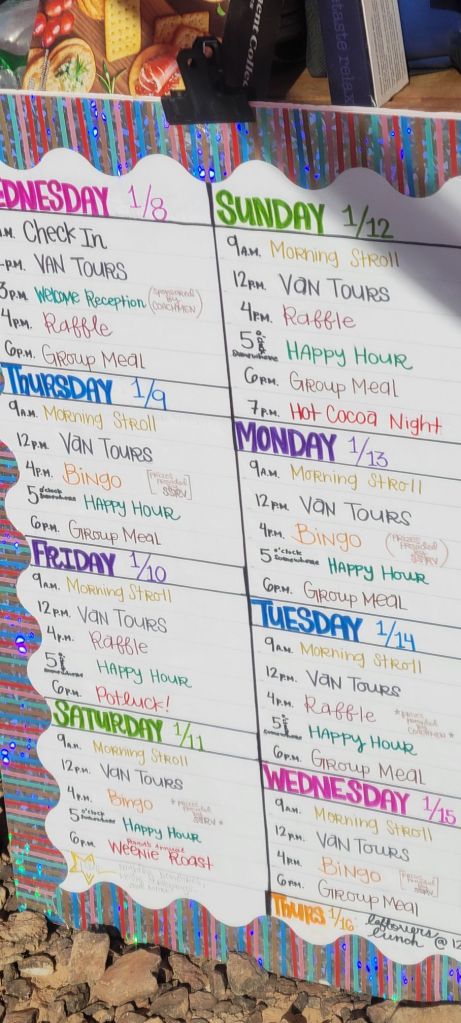 etaste relax
EDNESDAY 1/8
A.M. Check In
-P.M. VAN TOURS
3P.M. Welcome Reception (Sponsored by COACHMEN)
4P.M. Raffle
6P.M. GROUP MEAL
THURSDAY 1/9
9A.M. Morning Stroll
12P.M. VAN TOURS
4P.M. Bingo [PRIZES PROVIDED BY SSRV]
5 o'clock Somewhere HAPPY HOUR
6P.M. GROUP MEAL
FRIDAY 1/10
9A.M. Morning Stroll
12P.M. VAN TOURS
4P.M. Raffle
5 o'clock Somewhere HAPPY HOUR
6P.M. Potluck!
SATURDAY 1/11
9A.M. Morning Stroll
12P.M. VAN TOURS
4P.M. Bingo
5 o'clock Somewhere HAPPY HOUR
6P.M. Annual WEENIE ROAST
SUNDAY 1/12
9A.M. Morning Stroll
12P.M. VAN TOURS
4P.M. Raffle
5 o'clock Somewhere HAPPY HOUR
6P.M. GROUP MEAL
7P.M. HOT COCOA NIGHT
MONDAY 1/13
9A.M. Morning Stroll
12P.M. VAN TOURS
4P.M. Bingo (PRIZES PROVIDED BY SSRV)
5 o'clock Somewhere HAPPY HOUR
6P.M. GROUP MEAL
TUESDAY 1/14
9A.M. Morning Stroll
12P.M. VAN TOURS
4P.M. Raffle *PRIZES PROVIDED BY COACHMEN*
5 o'clock Somewhere HAPPY HOUR
6P.M. GROUP MEAL
WEDNESDAY 1/15
9A.M. Morning Stroll
12P.M. VAN TOURS
4P.M. BINGO
6P.M. GROUP MEAL
THURS 1/16 leftovers lunch @ 12